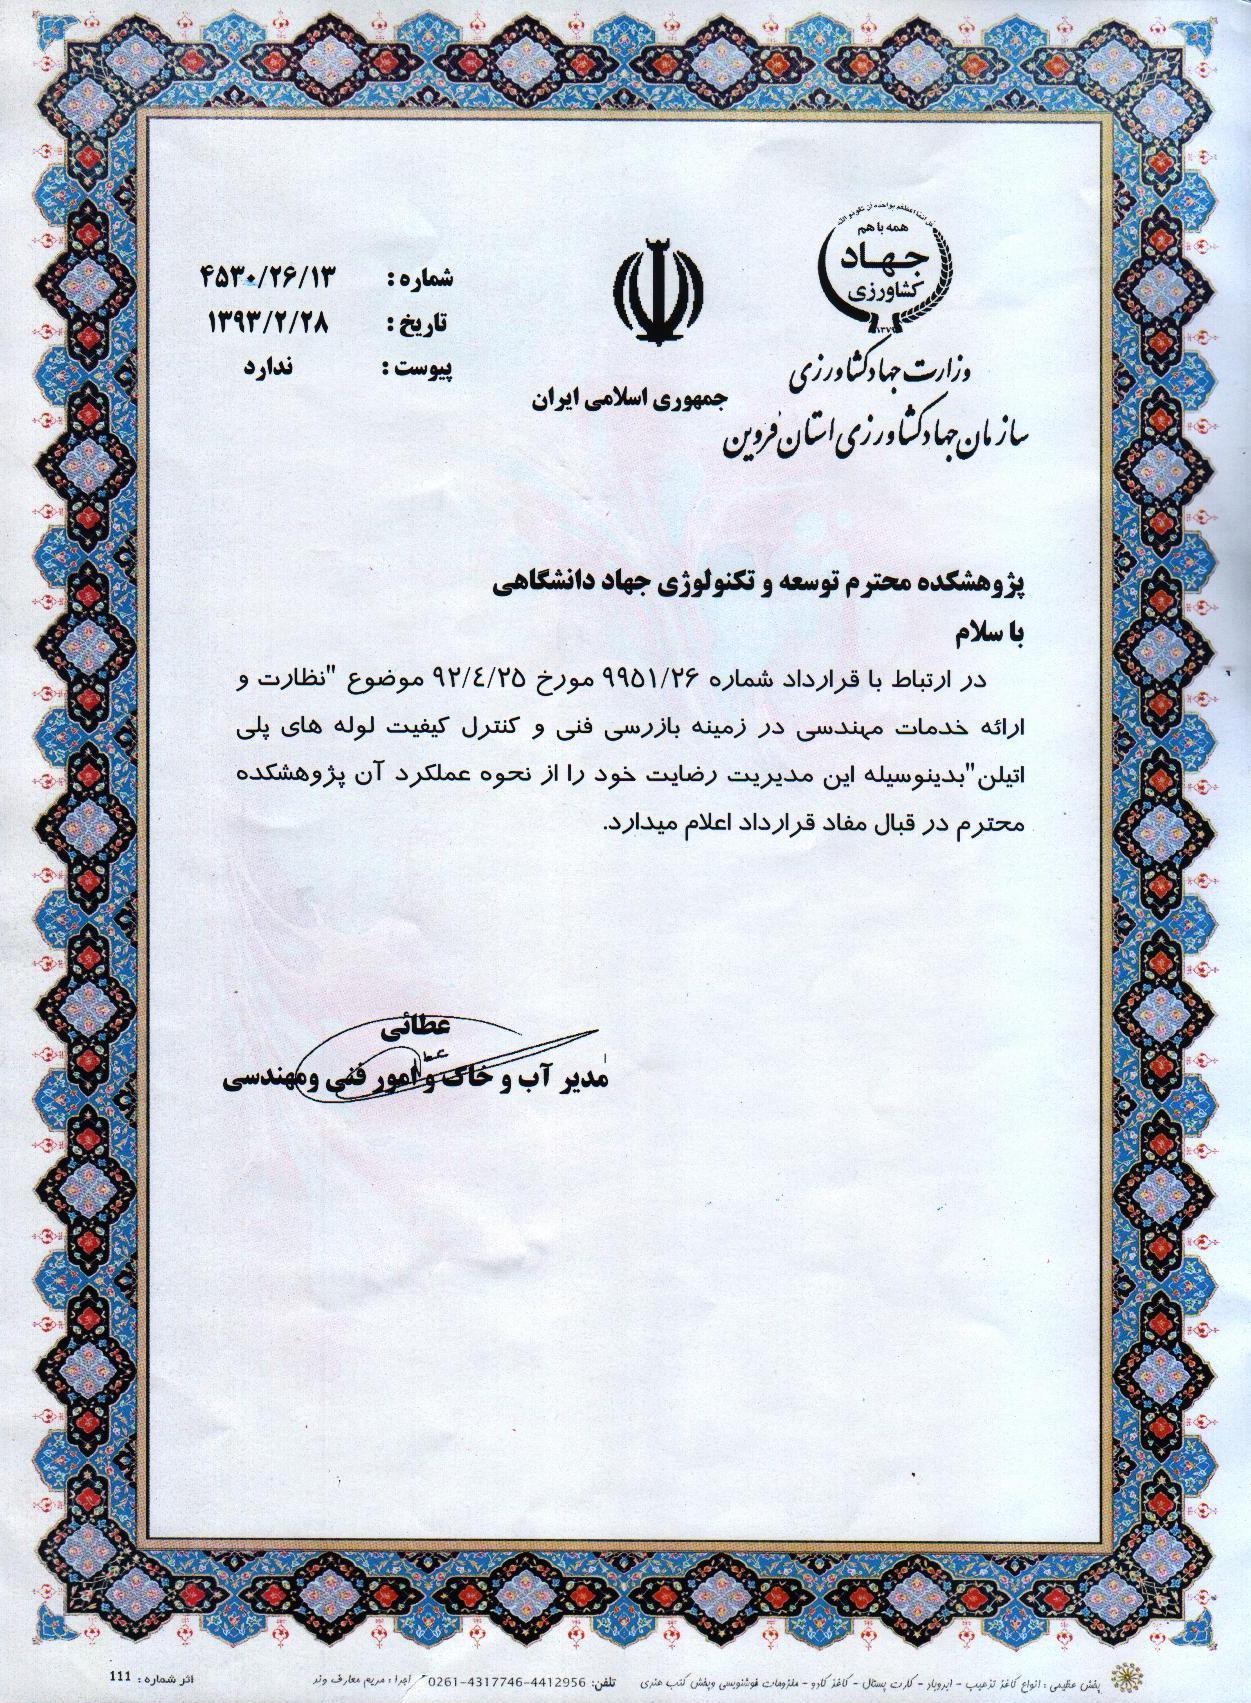 همه با هم
جهاد
کشاورزی
وزارت جهاد کشاورزی
سازمان جهاد کشاورزی استان قزوین
جمهوری اسلامی ایران
شماره : ۴۵۳۰/۲۶/۱۳
تاریخ : ۱۳۹۳/۲/۲۸
پیوست : ندارد
پژوهشکده محترم توسعه و تکنولوژی جهاد دانشگاهی
با سلام
در ارتباط با قرارداد شماره ۹۹۵۱/۲۶ مورخ ۹۲/٤/۲۵ موضوع "نظارت و
ارائه خدمات مهندسی در زمینه بازرسی فنی و کنترل کیفیت لوله های پلی
اتیلن"بدینوسیله این مدیریت رضایت خود را از نحوه عملکرد آن پژوهشکده
محترم در قبال مفاد قرارداد اعلام میدارد.
عطائی
مدیر آب و خاک و امور فنی ومهندسی
پخش عظیمی : انواع کاغذ تذهیب - ابروبار - کارت پستال - کاغذ کادو - ملزومات خوشنویسی وپخش کتب هنری تلفن: 4412956-4317746-0261 اجرا : مریم معارف وند
اثر شماره : 111